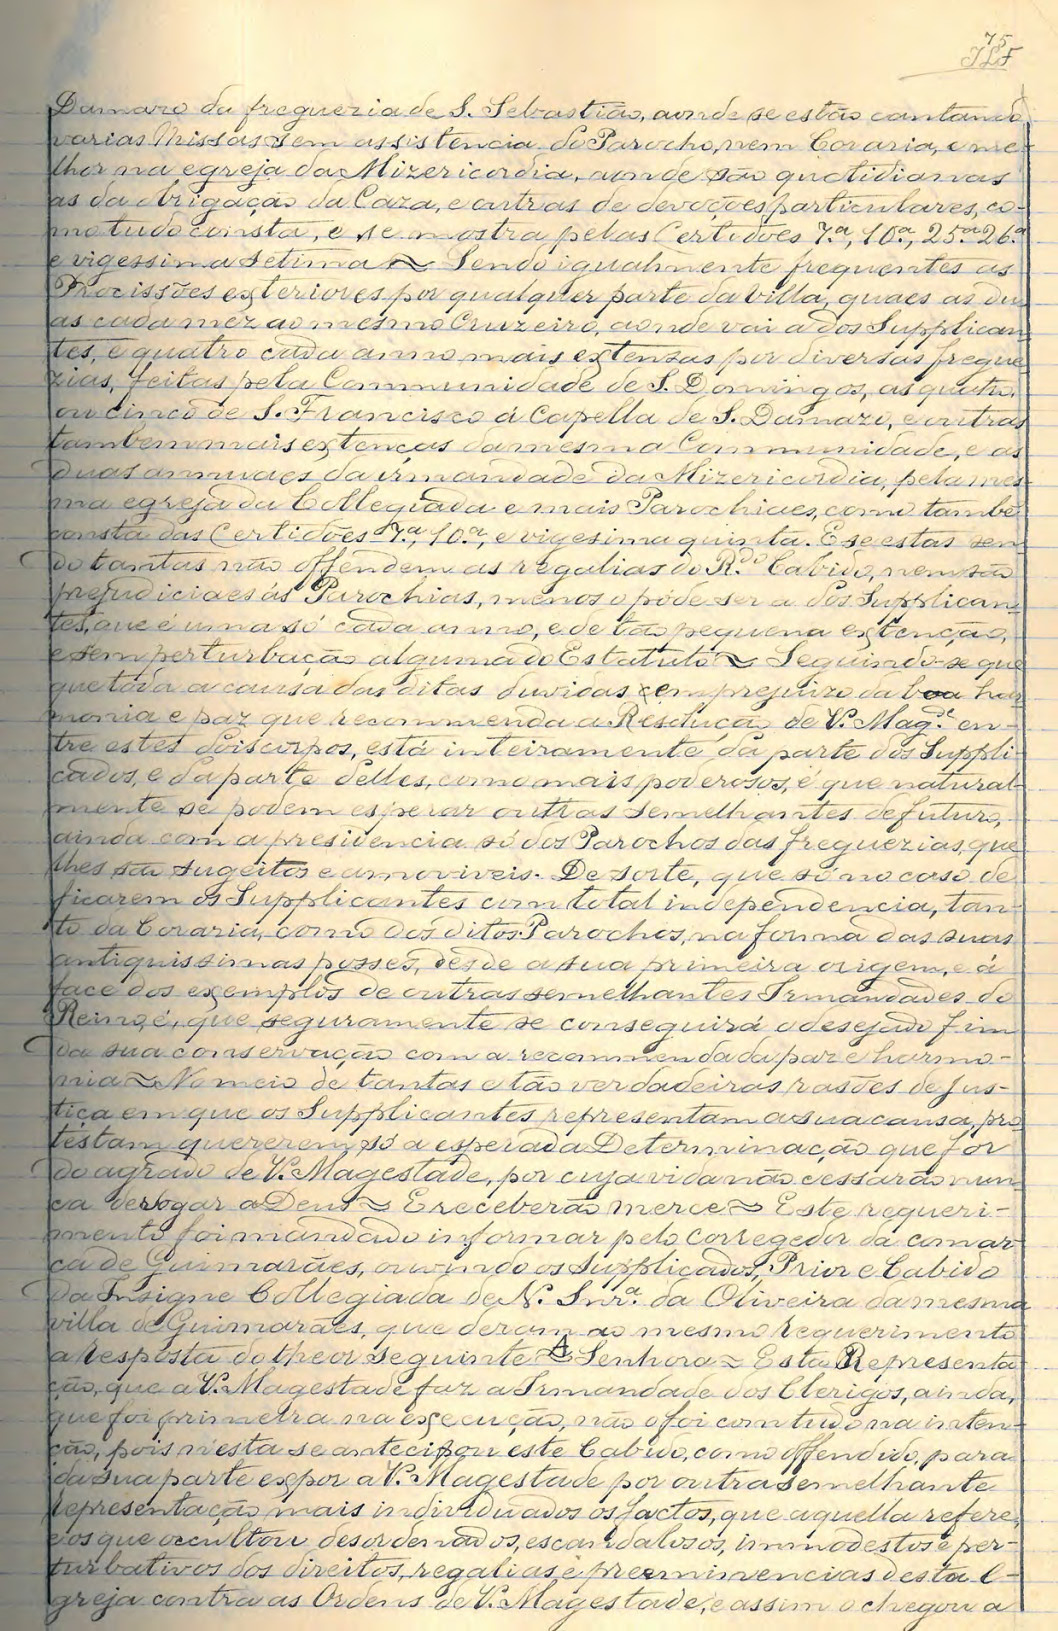 75
Damazo da freguezia de S. Sebastião, aonde se estão cantando
varias Missas sem assistencia do Parocho, nem Coraria, e me-
lhor na egreja da Mizericordia, aonde são quotidianas
as da obrigação da Caza, e outras de devoções particulares, co-
mo tudo consta, e se mostra pelas Certidões 7.ª, 10.ª, 25.ª 26.ª
e vigessima setima ~ Sendo igualmente frequentes as
Procissões exteriores por qualquer parte da Villa, quaes as du-
as cada mez ao mesmo Cruzeiro, aonde vai a dos Supplican
tes, e quatro cada anno mais extensas por diversas fregue
zias, feitas pela Communidade de S. Domingos, as quatro,
ou cinco de S. Francisco á Capella de S. Damazo, e outras
tambem mais extenças da mesma Communidade, e as
duas annuaes da irmandade da Mizericordia, pela mes-
ma egreja da Collegiada e mais Parochiaes, como també
consta das Certidões 7.ª, 10.ª, e vigesima quinta. E se estas sen
do tantas não offendem as regalias do R.do Cabido, nem são
prejudiciaes ás Parochias, menos o póde ser a dos Supplican-
tes, que é uma só cada anno, e de tão pequena extenção,
e sem perturbação alguma do Estatuto ~ Seguindo-se que
que toda a causa das ditas duvidas em prejuizo da boa har
monia e paz que recommenda a Resolução de V. Mag.e en-
tre estes dois corpos, está inteiramente da parte dos Suppli-
cados, e da parte delles, como mais poderosos, é que natural-
mente se podem esperar outras semelhantes de futuro,
ainda com a presidencia só dos Parochos das freguezias, que
lhes são sugeitos e amoviveis. De sorte, que só no caso de
ficarem os Supplicantes com total independencia, tan-
to da Coraria, como dos ditos Parochos, na forma das suas
antiquissimas posses, desde a sua primeira origem, e á
face dos exemplos de outras semelhantes Irmandades do
Reino, é, que seguramente se conseguirá o desejado fim
da sua conservação com a recommendada paz e harmo-
nia ~ No meio de tantas e tão verdadeiras rasões de jus-
tiça em que os Supplicantes representam a sua causa, pro
testam quererem só a esperada Determinação que for
do agrado de V. Magestade, por cuja vida não cessarão nun-
ca de rogar a Deus ~ E receberão merce ~ Este requeri-
mento foi mandado informar pelo Corregedor da comar
ca de Guimarães, ouvindo os Supplicados, Prior e Cabido
da Insigne Collegiada de N. Snr.ª da Oliveira da mesma
villa de Guimarães, que deram ao mesmo requerimento
a resposta do theor seguinte ~ Senhora ~ Esta Representa
ção, que a V. Magestade faz a Irmandade dos Clerigos, ainda,
que foi primeira na execução, não o foi com tudo na inten-
ção, pois n'esta se antecipou este Cabido, como offendido, para
da sua parte expor a V. Magestade por outra semelhante
representação mais individuados os factos, que aquella refere,
e os que occultou desordenados, escandalosos, immodestos e per-
turbativos dos direitos, regalias e preeminencias desta E-
greja contra as Ordens de V. Magestade, e assim o chegou a